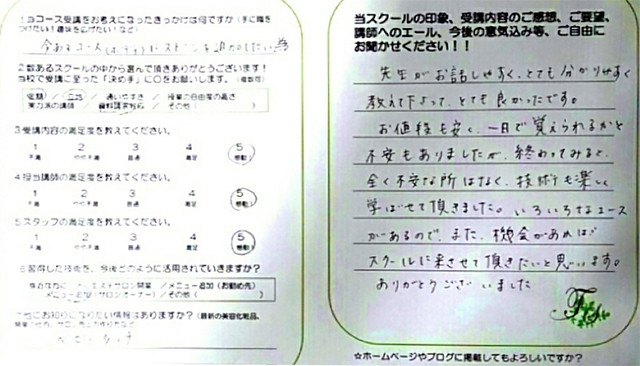 1 当コース受講をお考えになったきっかけは何ですか(手に職を
つけたい!趣味を広げたい!など)
今あるコース
2 数あるスクールの中から選んで頂きありがとうございます!
当校で受講に至った「決め手」に○をお願いします。(複数可)
短期 / / 通いやすさ / 授業の自由度の高さ
実力派の講師 / 資料請求対応 / その他(
3 受講内容の満足度を教えてください。
1 2 3 4 5
不満 やや不満 普通 満足 感動!
4 担当講師の満足度を教えてください。
1 2 3 4 5
不満 やや不満 普通 満足 感動!
5 スタッフの満足度を教えてください。
1 2 3 4 5
不満 やや不満 普通 満足 感動!
6 習得した技術を、今後どのように活用されていきますか?
エステサロン開業 / メニュー追加(お勤め先)
メニュー追加(サロンオーナー) / その他(
7 他にお知りになりたい情報はありますか?(最新の美容化粧品、
当スクールの印象、受講内容のご感想、ご要望、
講師へのエール、今後の意気込み等、ご自由に
お聞かせください!!
先生がお話しやすく、とても分かりやすく
教えて下さって、とても良かったです。
お値段も安く、一日で覚えられるかと
不安もありましたが、終わってみると、
全く不安な所はなく、技術も楽しく
学ばせて頂きました。いろいろなコース
があるので、また、機会があれば
スクールに来させて頂きたいと思います。
ありがとうございました
☆ホームページやブログに掲載してもよろしいですか?